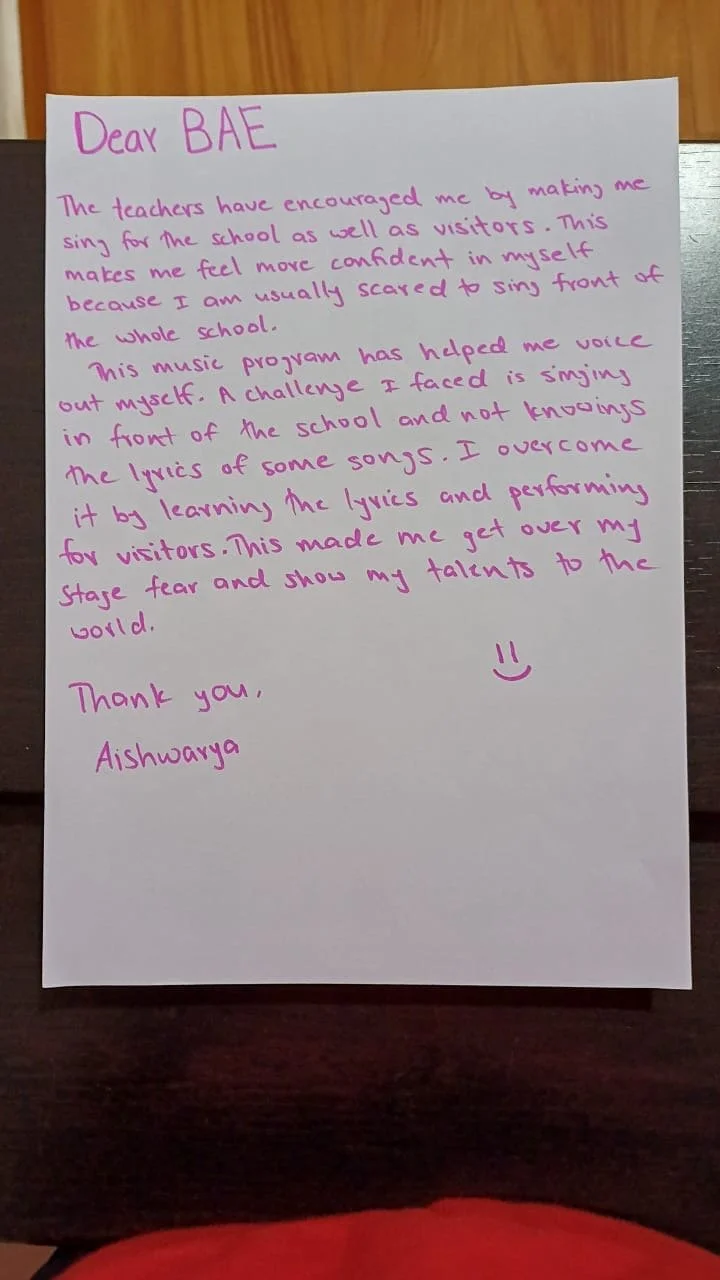 Dear BAE
The teachers have encouraged me by making me
sing for the school as well as visitors. This
makes me feel more confident in myself
because I am usually scared to sing front of
the whole school.
This music program has helped me voice
out myself. A challenge I faced is singing
in front of the school and not knowings
the lyrics of some songs. I overcome
it by learning the lyrics and performing
for visitors. This made me get over my
stage fear and show my talents to the
world.
Thank you,
Aishwarya